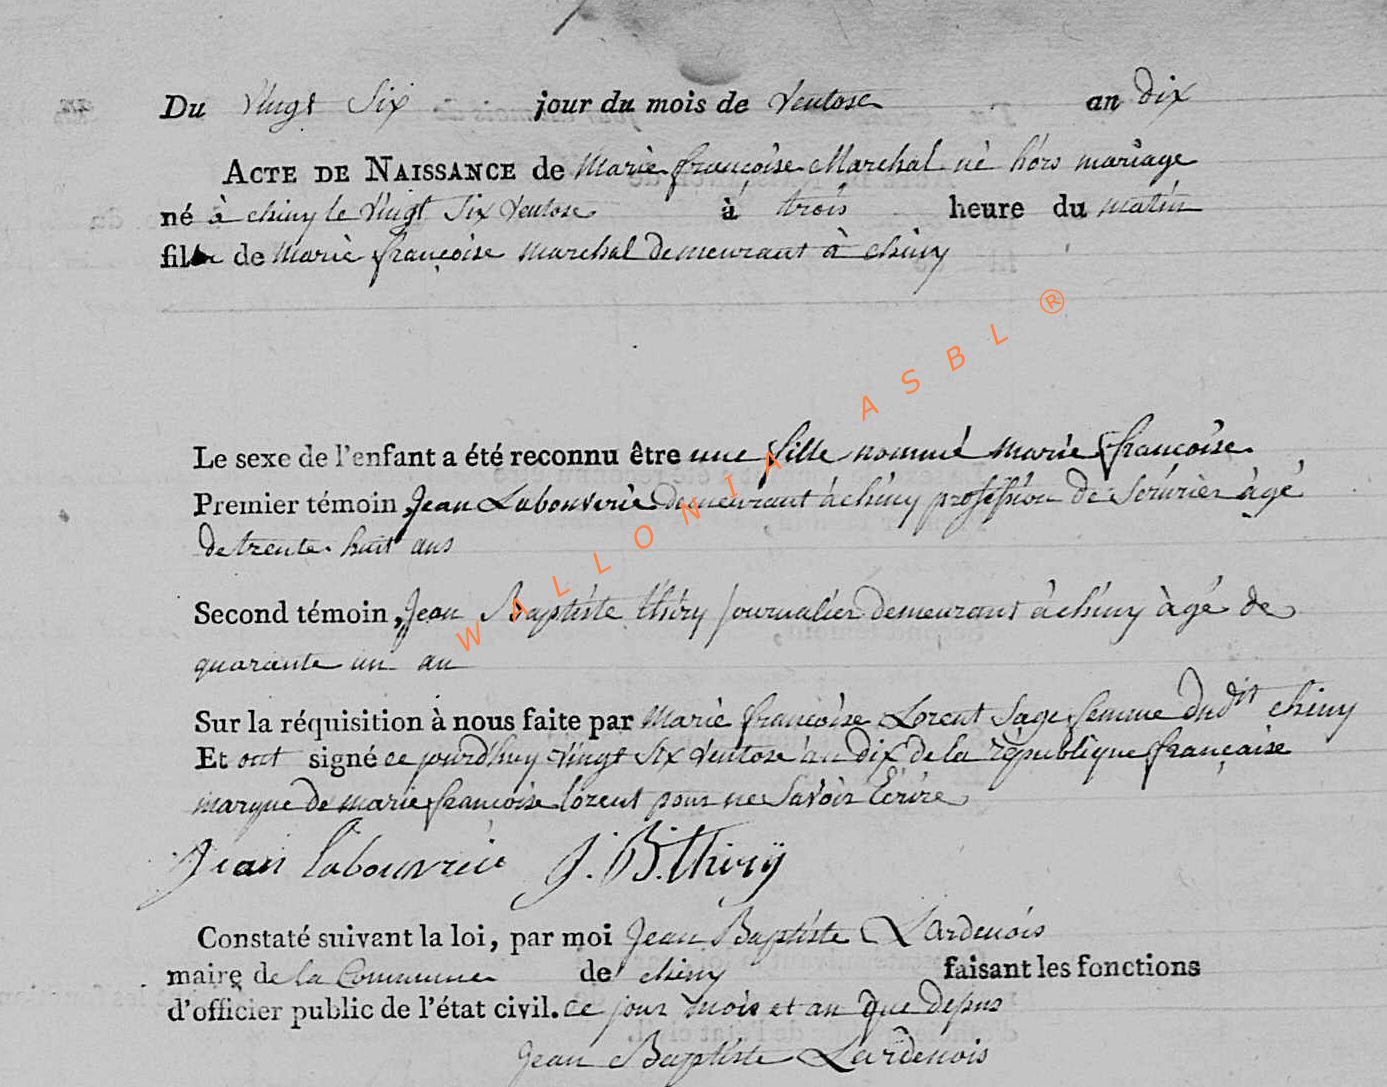 Du Vingt Six jour du mois de Ventose an dix
ACTE DE NAISSANCE de Marie françoise Marechal né hors mariage
né à chiny le Vingt Six Ventose à trois heure du matin
fille de Marie françoise marechal demeurant à chiny
Le sexe de l'enfant a été reconnu être une fille nommé marie françoise
Premier témoin, Jean Labouverie demeurant à chiny profession de Serurier àgé
de trente huit ans
Second témoin, Jean Baptiste thiry journalier demeurant à chiny àgé de
quarante un an
Sur la réquisition à nous faite par Marie françoise Lorent Sage femme dudit chiny
Et ont signé ce jourd'huy Vingt Six Ventose an dix de la république française
marque de marie françoise lorent pour ne Savoir Ecrire
Jean labouverie J. B. thiry
Constaté suivant la loi, par moi Jean Baptiste Lardenois
maire de la Commune de chiny faisant les fonctions
d'officier public de l'état civil. ce jour mois et an que depus
Jean Baptiste Lardenois
WALLONIA ASBL ®